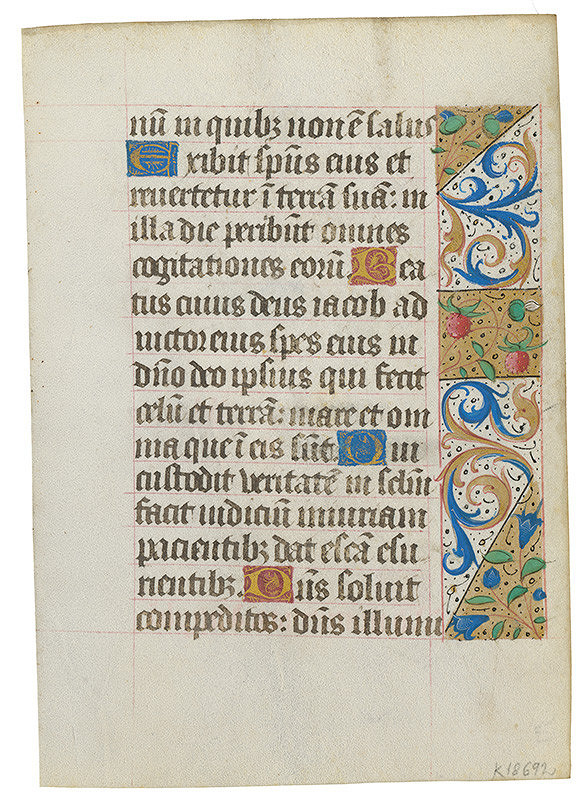 nū in quibꝫ non ē salus
Exibit sp̄us eius et
reuertetur ī terrā suā: in
illa die peribūt omnes
cogitationes eorū. Bea
tus cuius deus iacob ad
iutor eius spes eius in
dn̄o deo ipsius qui fecit
celū et terrā: mare et om
nia que ī eis sūt. Qui
custodit veritatē in sclm̄
facit iudiciū iniuriam
pacientibꝫ dat escā esu
rientibꝫ. Dn̄s soluit
compeditos: dn̄s illumi
K18692